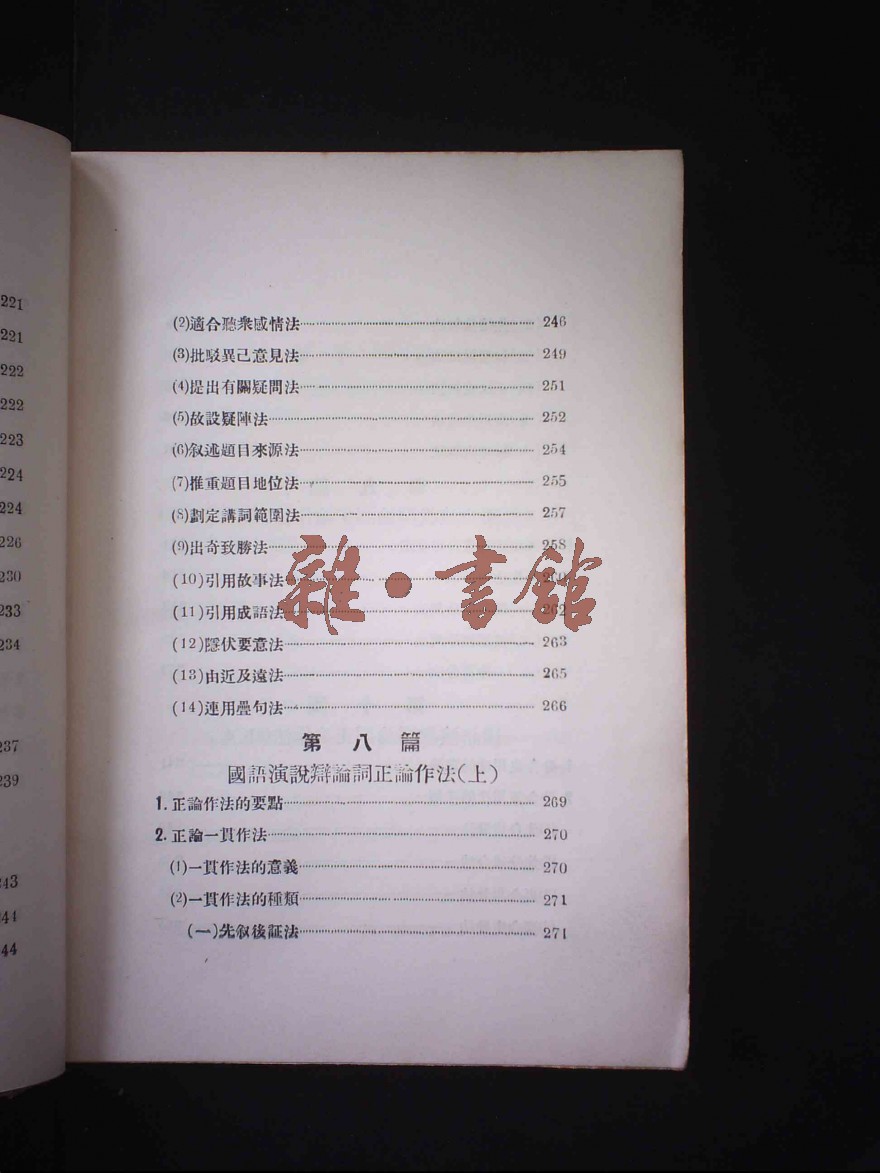 221
221
222
222
223
224
224
226
230
233
234
237
239
243
244
(2)適合聽衆感情法 246
(3)批駁異己意見法 249
(4)提出有關疑問法 251
(5)故設疑陣法 252
(6)叙述題目來源法 254
(7)推重題目地位法 255
(8)劃定講詞範圍法 257
(9)出奇致勝法 258
(10)引用故事法 260
(11)引用成語法 262
(12)隱伏要意法 263
(13)由近及遠法 265
(14)連用疊句法 266
第八篇
國語演說辯論詞正論作法(上)
1.正論作法的要點 269
2.正論一貫作法 270
(1)一貫作法的意義 270
(2)一貫作法的種類 271
(一)先叙後証法 271
雜·書館